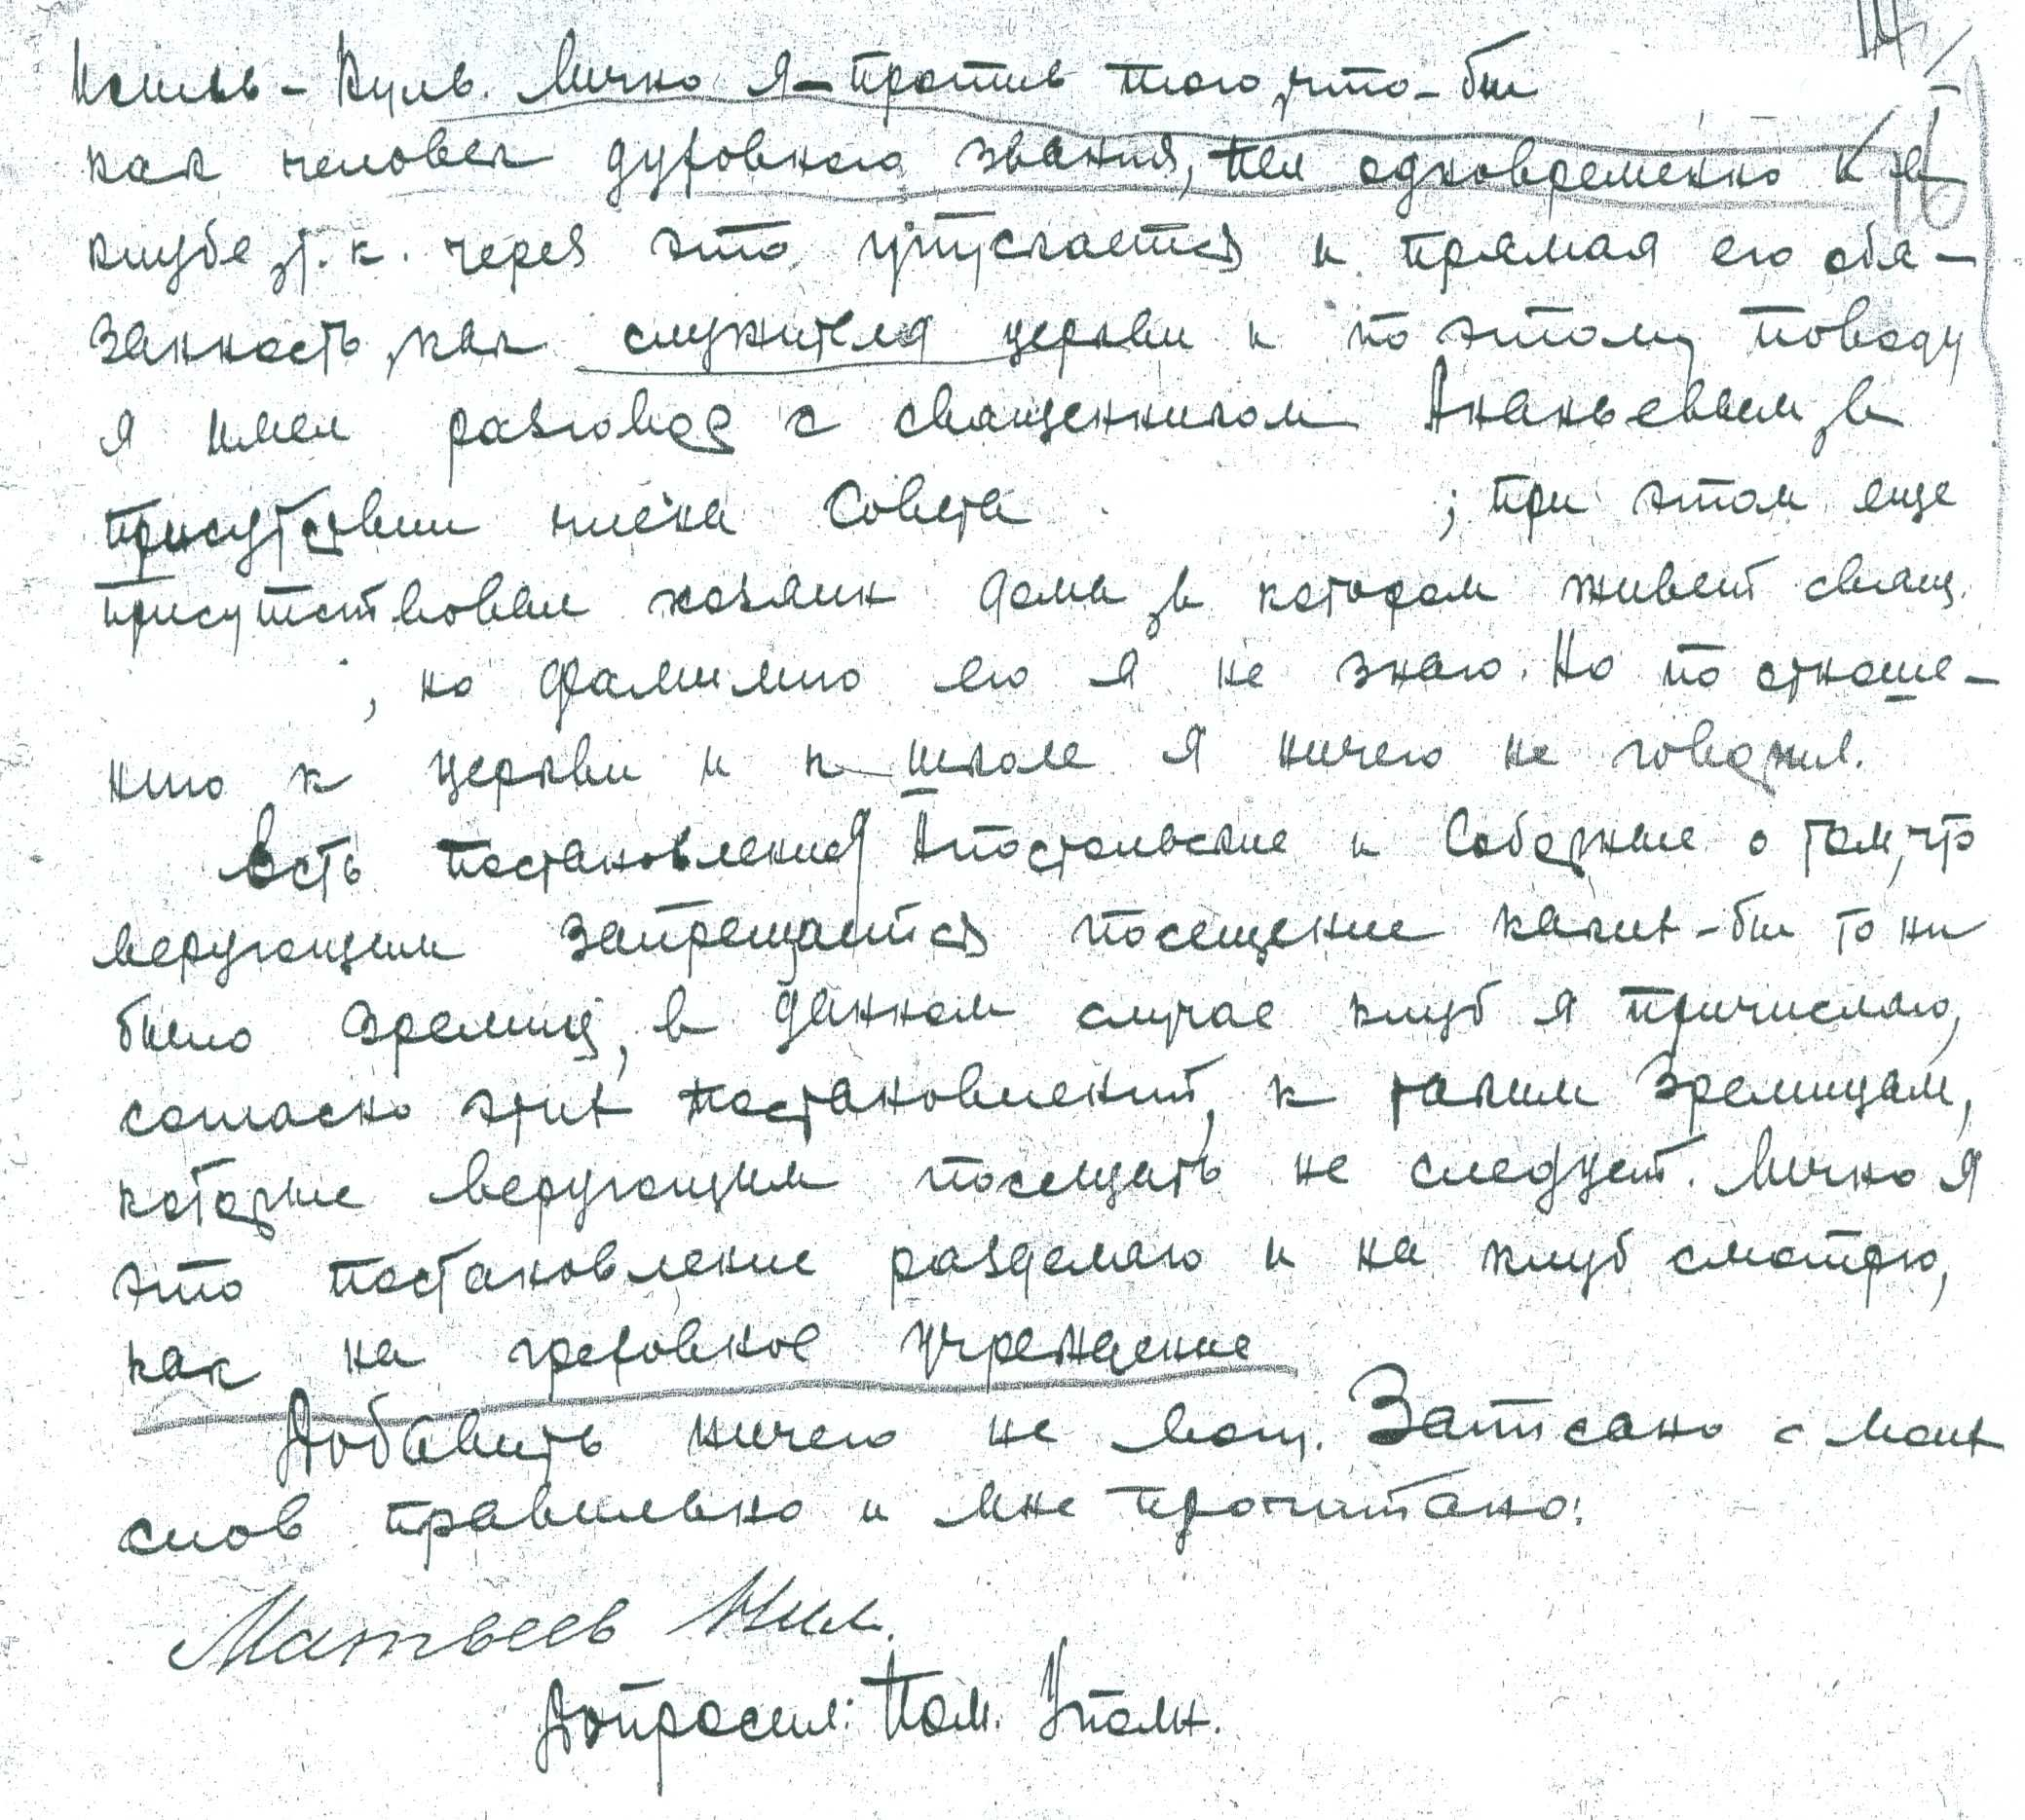 Исиль-Куль. Лично я - против того, что-бы
как человек духовного звания, пел одновременно и в
клубе, т.к. через это упускается и прямая его обя-
занность, как служителя церкви и по этому поводу
я имел разговор с священником Ананьевым, в
присутствии члена Совета ; при этом еще
присутствовал хозяин дома, в котором живет свящ.
, но фамилию его я не знаю. Но по отноше-
нию к церкви и к школе я ничего не говорил.
Есть постановления Апостольские и Соборные о том, что
верующим запрещается посещение каких-бы то ни
было зрелищ, в данном случае клуб я причисляю,
согласно этих постановлений, к таким зрелищам,
которые верующим посещать не следует. Лично я
это постановление разделяю и на клуб смотрю,
как на греховное учреждение
Добавить ничего не могу. Записано с моих
слов правильно и мне прочитано:
Матвеев Нил.
Допросил: Пом. Уполн.